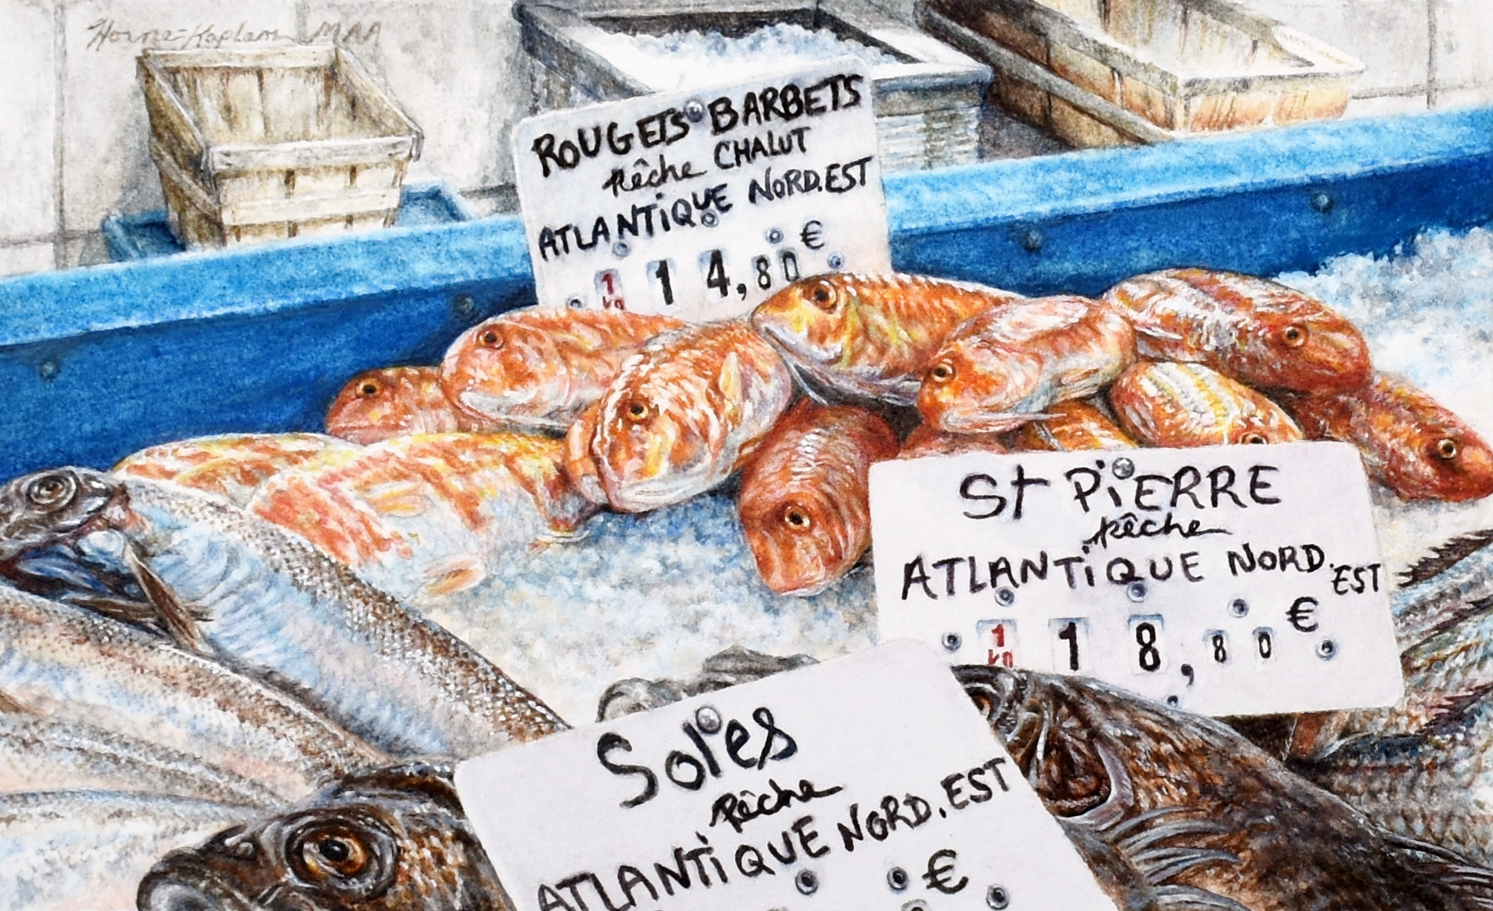 ROUGETS BARBETS
pêche CHALUT
ATLANTIQUE NORD.EST
€
1 kg 14,80
St PiERRE
pêche
ATLANTiQUE NORD.EST
€
1 kg 18,80
Soles
pêche
ATLANTiQUE NORD.EST
€